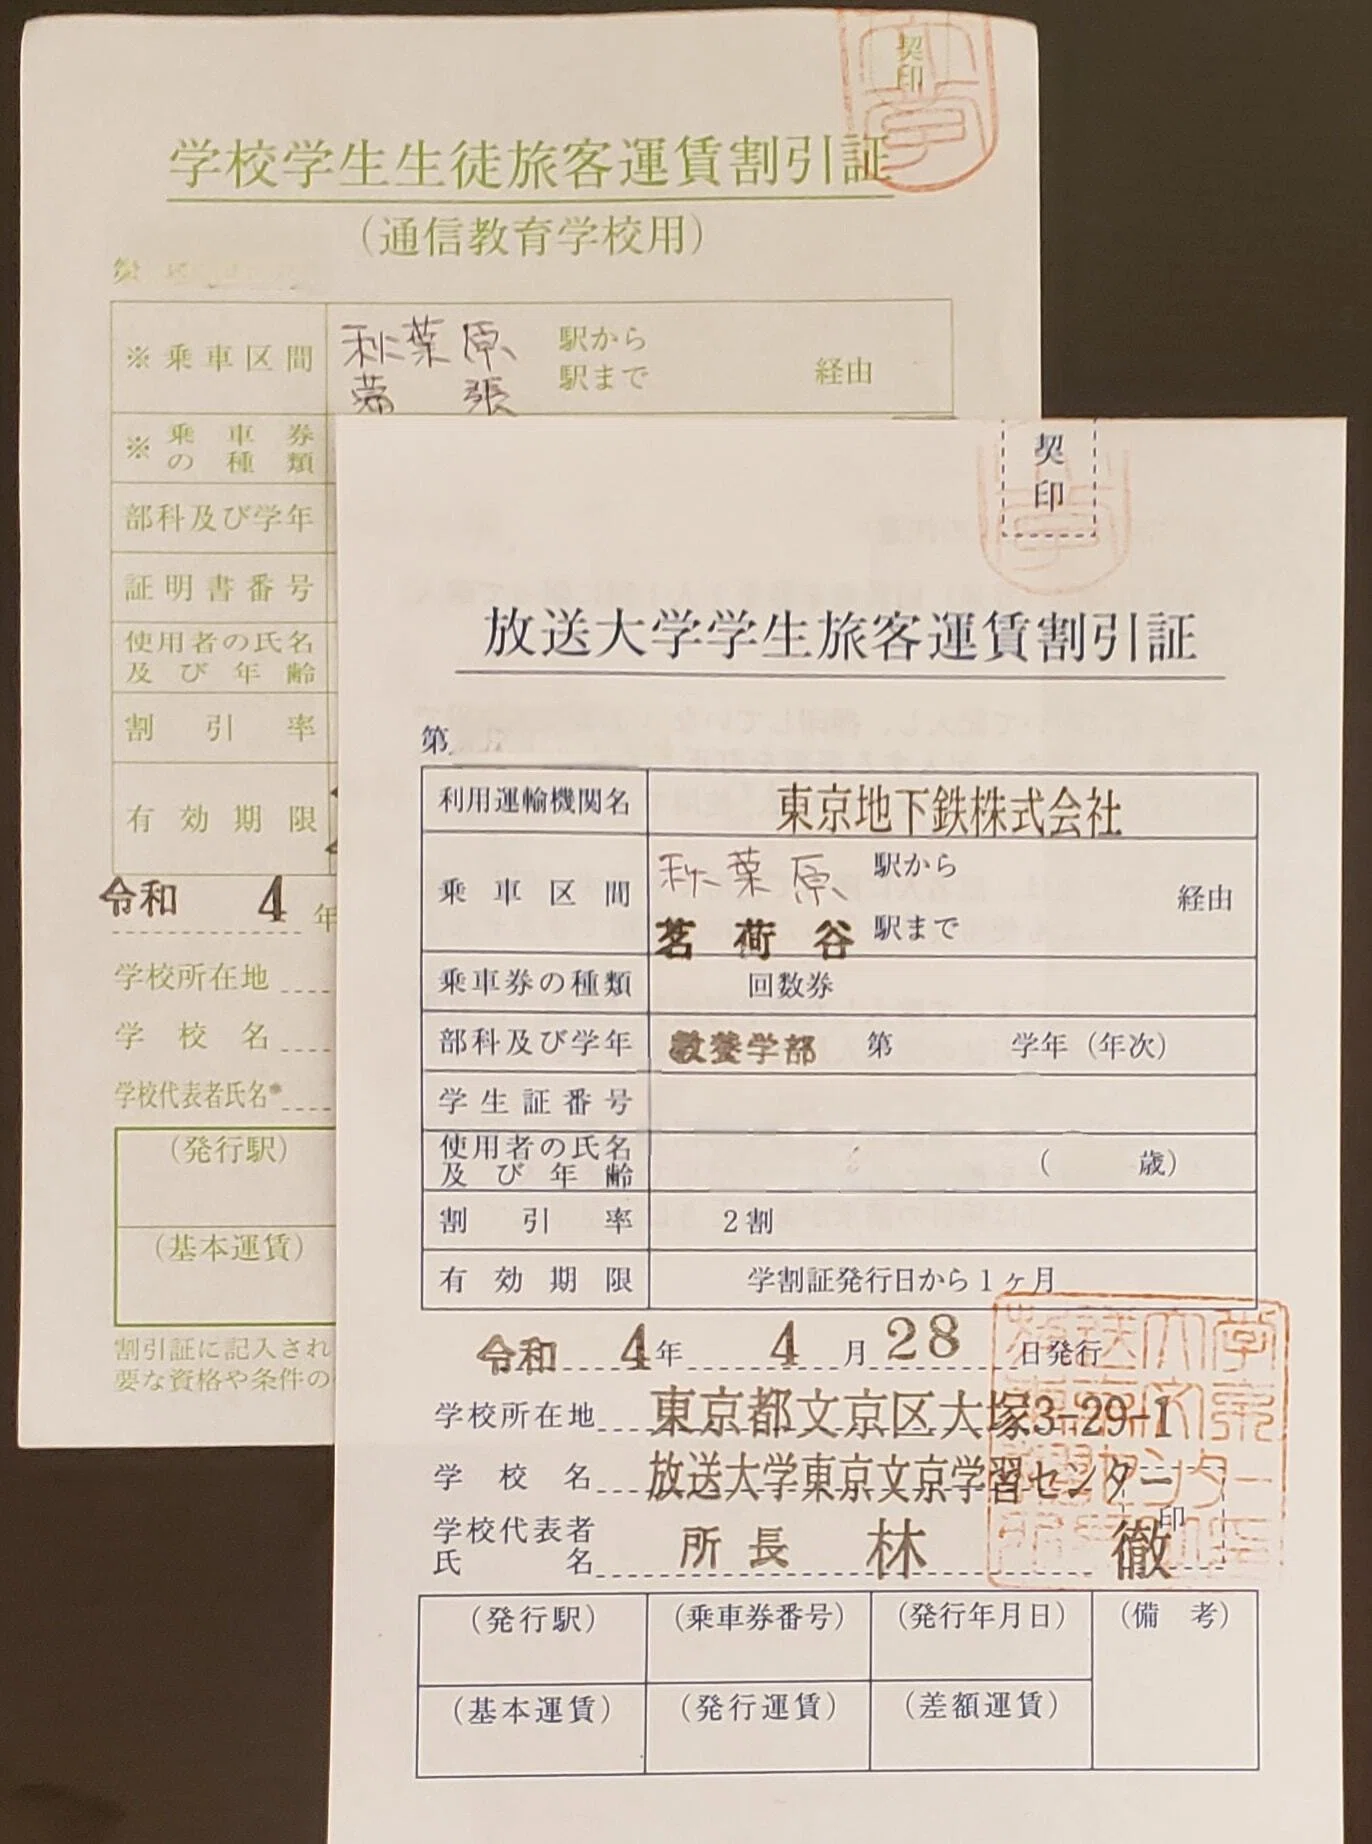 契
印
学校学生生徒旅客運賃割引証
(通信教育学校用)
※乗車区間 秋葉原 駅から
幕張 駅まで 経由
※乗車券
の種類
部科及び学年
証明書番号
使用者の氏名
及び年齢
割引率
有効期限
令和 4 年
学校所在地
学校名
学校代表者氏名
(発行駅)
(基本運賃)
割引証に記入され
要な資格や条件の
契
印
放送大学学生旅客運賃割引証
第
利用運輸機関名 東京地下鉄株式会社
乗車区間 秋葉原 駅から
茗荷谷 駅まで 経由
乗車券の種類 回数券
部科及び学年 教養学部 第 学年(年次)
学生証番号
使用者の氏名
及び年齢 ( 歳)
割引率 2割
有効期限 学割証発行日から1ヶ月
令和 4年 4月 28日発行
学校所在地 東京都文京区大塚3-29-1
学校名 放送大学東京文京学習センター
学校代表者
氏名 所長 林 徹 印
(発行駅) (乗車券番号) (発行年月日) (備考)
(基本運賃) (発行運賃) (差額運賃)